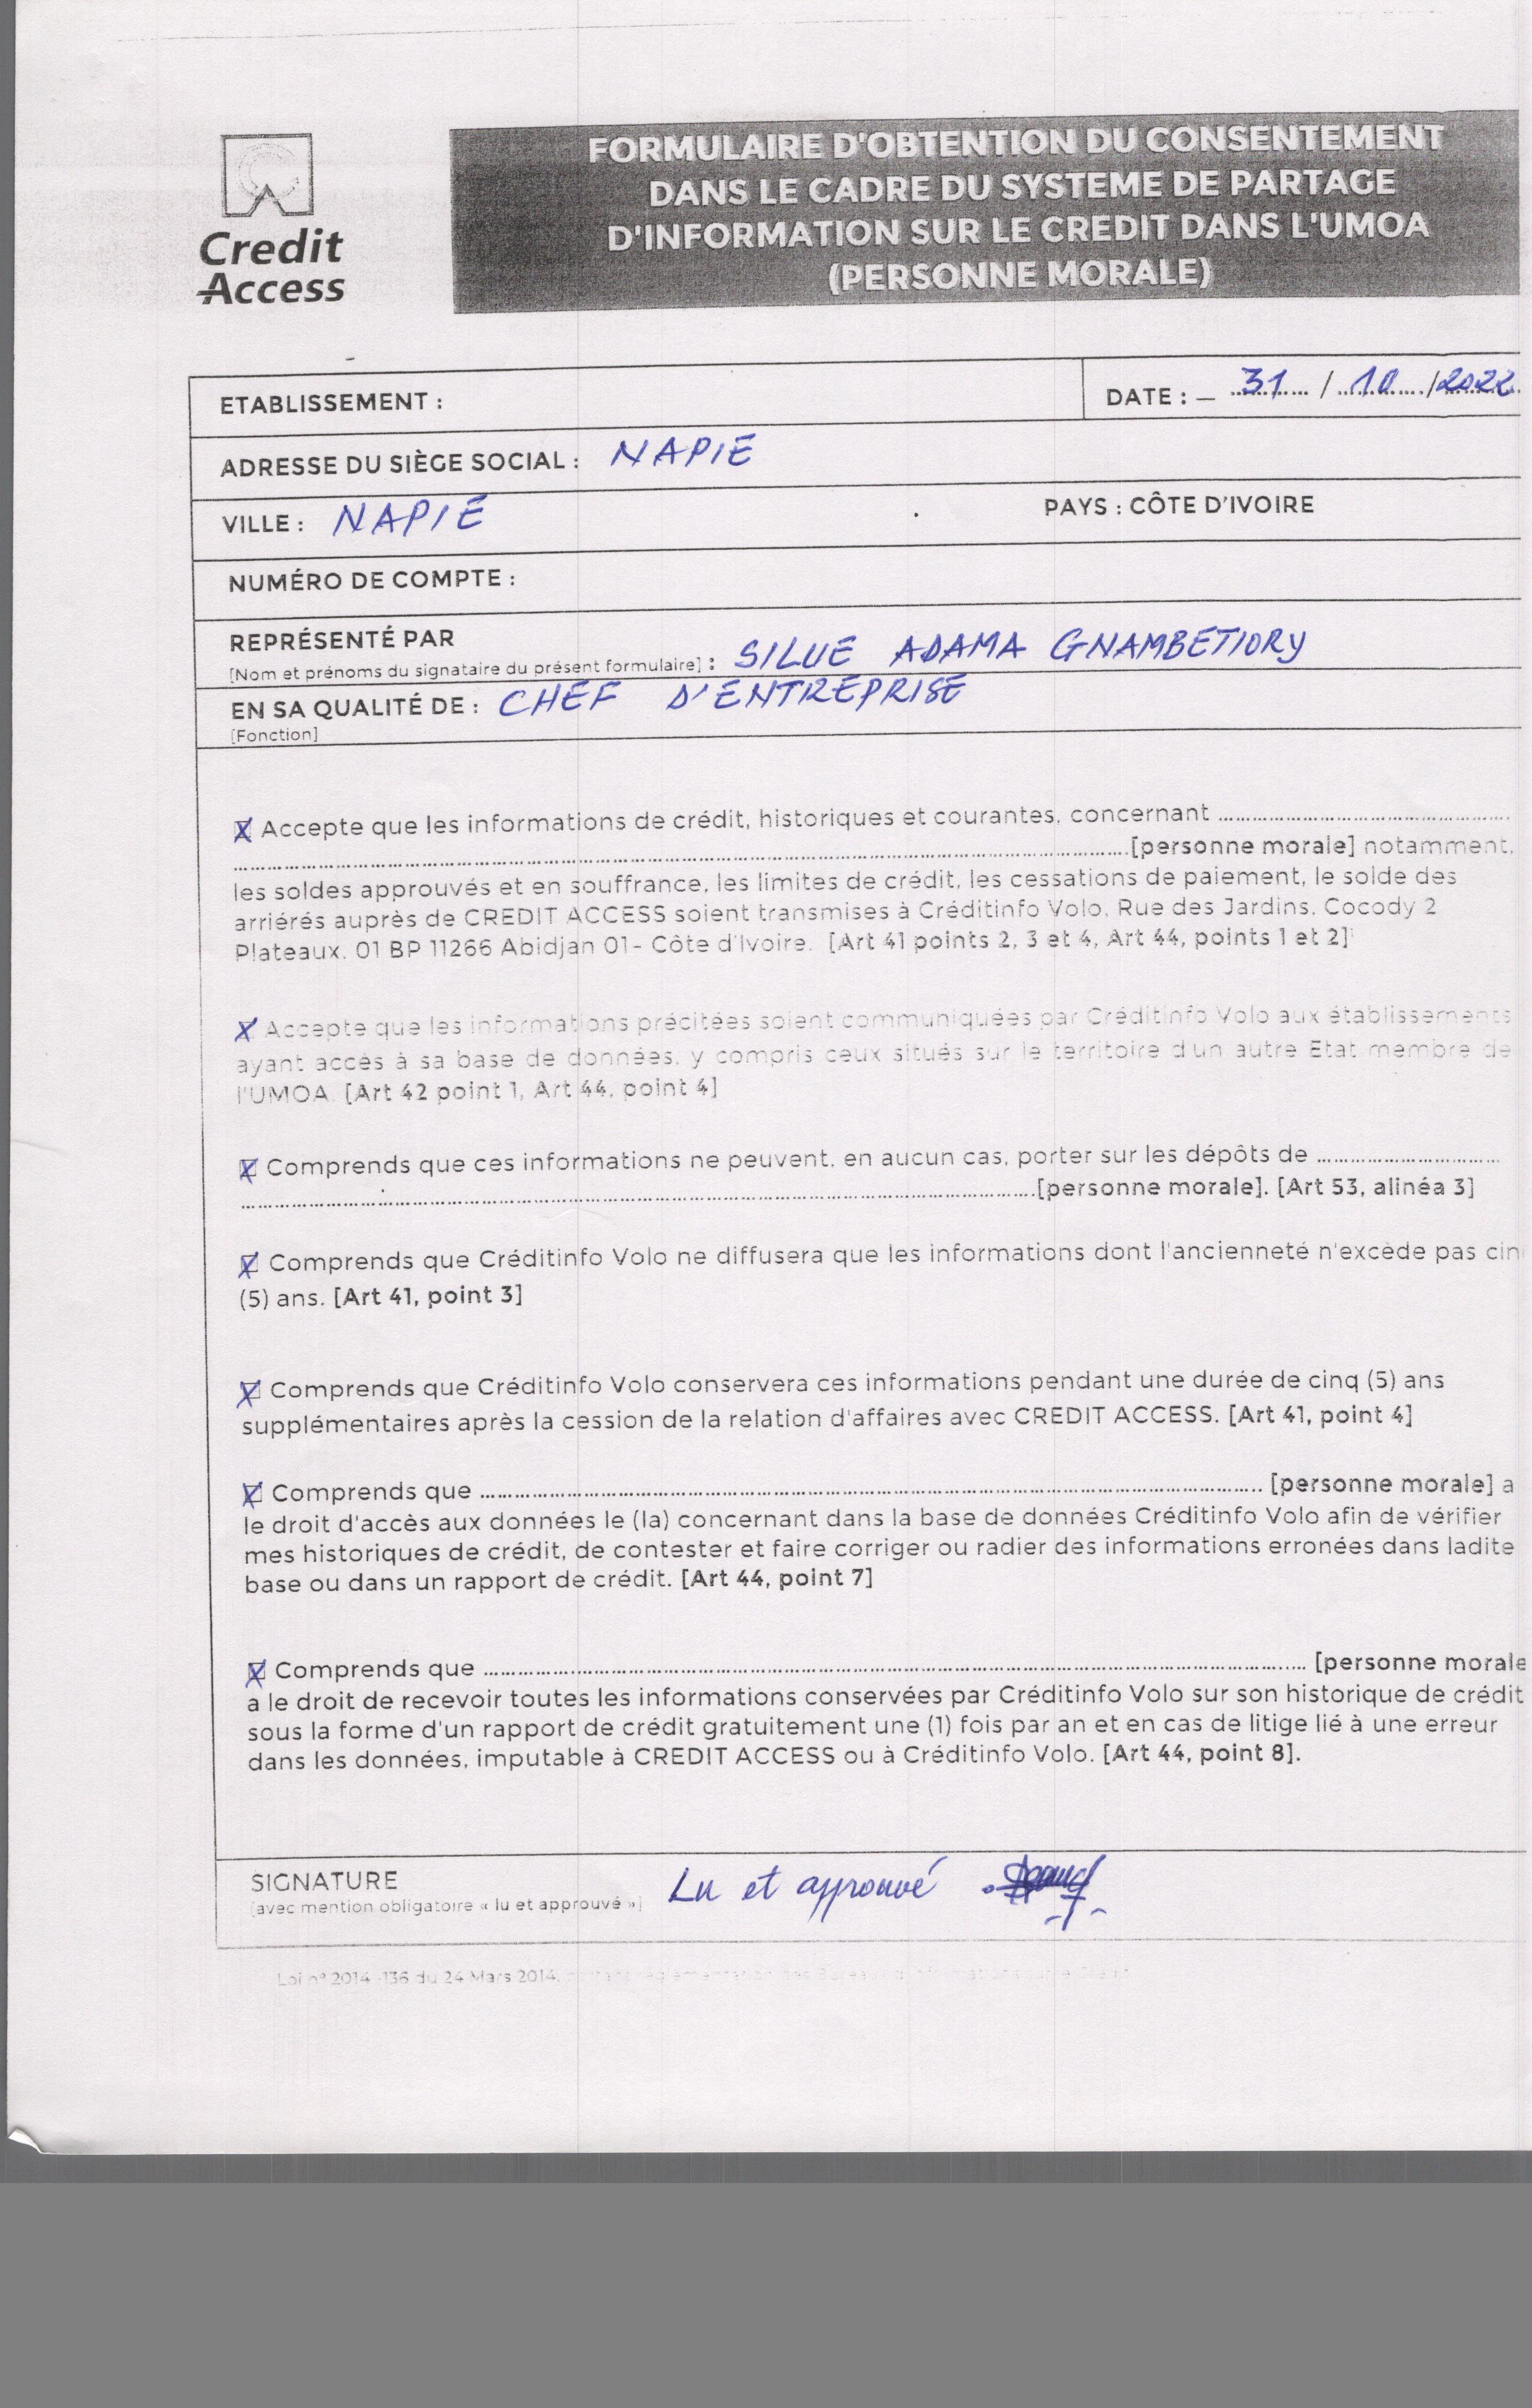 Credit
Access
FORMULAIRE D'OBTENTION DU CONSENTEMENT
DANS LE CADRE DU SYSTEME DE PARTAGE
D'INFORMATION SUR LE CREDIT DANS L'UMOA
(PERSONNE MORALE)
ETABLISSEMENT :
DATE : – 31 / 10 / 2022
ADRESSE DU SIÈGE SOCIAL : NAPIE
VILLE : NAPIE PAYS : CÔTE D'IVOIRE
NUMÉRO DE COMPTE :
REPRÉSENTÉ PAR
[Nom et prénoms du signataire du présent formulaire] : SILUE ADAMA GNAMBETIORY
EN SA QUALITÉ DE : CHEF D'ENTREPRISE
[Fonction]
☒ Accepte que les informations de crédit, historiques et courantes, concernant ........................
........................[personne morale] notamment,
les soldes approuvés et en souffrance, les limites de crédit, les cessations de paiement, le solde des
arriérés auprès de CREDIT ACCESS soient transmises à Créditinfo Volo, Rue des Jardins, Cocody 2
Plateaux, 01 BP 11266 Abidjan 01- Côte d'Ivoire. [Art 41 points 2, 3 et 4, Art 44, points 1 et 2]
☒ Accepte que les informations précitées soient communiquées par Créditinfo Volo aux établissements
ayant accès à sa base de données, y compris ceux situés sur le territoire d'un autre Etat membre de
l'UMOA. [Art 42 point 1, Art 44, point 4]
☒ Comprends que ces informations ne peuvent, en aucun cas, porter sur les dépôts de ........................
........................[personne morale]. [Art 53, alinéa 3]
☒ Comprends que Créditinfo Volo ne diffusera que les informations dont l'ancienneté n'excède pas cin
(5) ans. [Art 41, point 3]
☒ Comprends que Créditinfo Volo conservera ces informations pendant une durée de cinq (5) ans
supplémentaires après la cession de la relation d'affaires avec CREDIT ACCESS. [Art 41, point 4]
☒ Comprends que ........................ [personne morale] a
le droit d'accès aux données le (la) concernant dans la base de données Créditinfo Volo afin de vérifier
mes historiques de crédit, de contester et faire corriger ou radier des informations erronées dans ladite
base ou dans un rapport de crédit. [Art 44, point 7]
☒ Comprends que ........................ [personne morale
a le droit de recevoir toutes les informations conservées par Créditinfo Volo sur son historique de crédit
sous la forme d'un rapport de crédit gratuitement une (1) fois par an et en cas de litige lié à une erreur
dans les données, imputable à CREDIT ACCESS ou à Créditinfo Volo. [Art 44, point 8].
SIGNATURE
[avec mention obligatoire « lu et approuvé »] Lu et approuvé
Loi n° 2014 -136 du 24 Mars 2014,